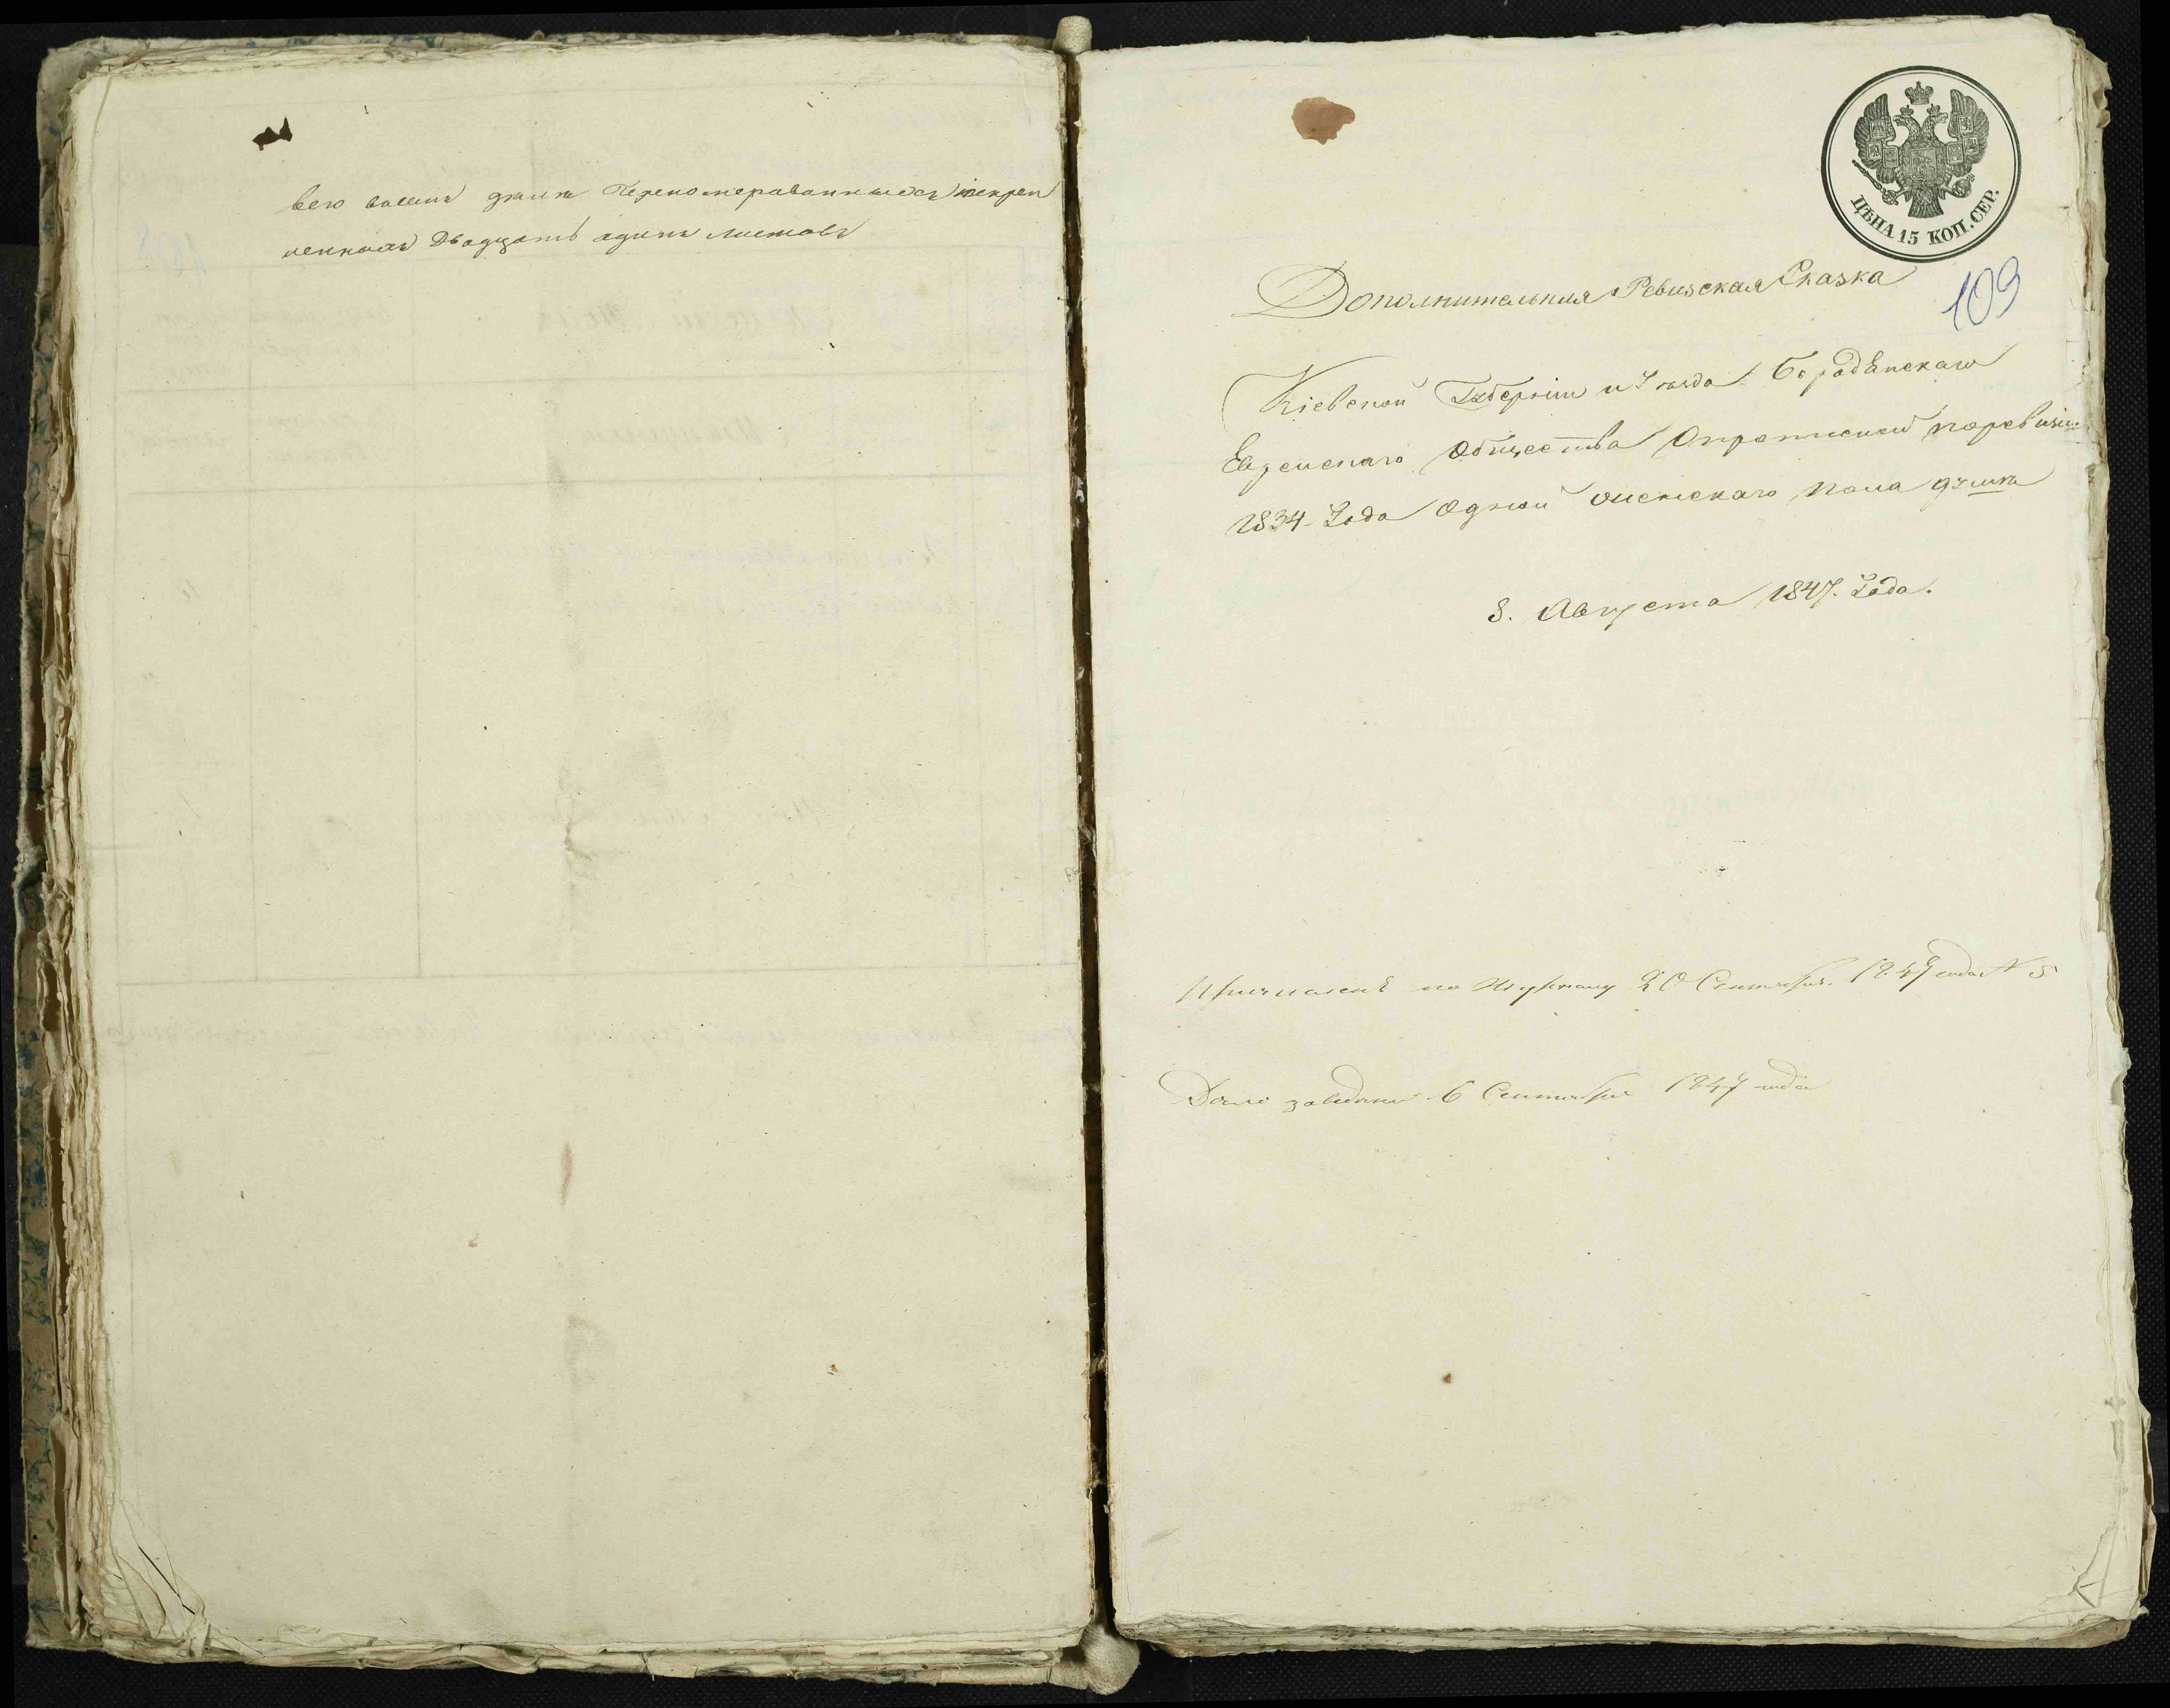 всего въ семъ дѣлѣ Переномерованныхъ искреп
ленныхъ Двадцать адинъ листовъ
ЦѢНА 15 КОП. СЕР.
109
Дополнительная Ревизская Сказка
Кіевской Губерніи и Уѣзда Бородянскаго
Еврейскаго Общества Опрописной поревизіи
1834. Года Одной женскаго пола душѣ
8. Августа 1847. Года.
по Журналу 20 Сентября. 1847 года № 5
Дѣло заведено 6 Сентября 1847 года